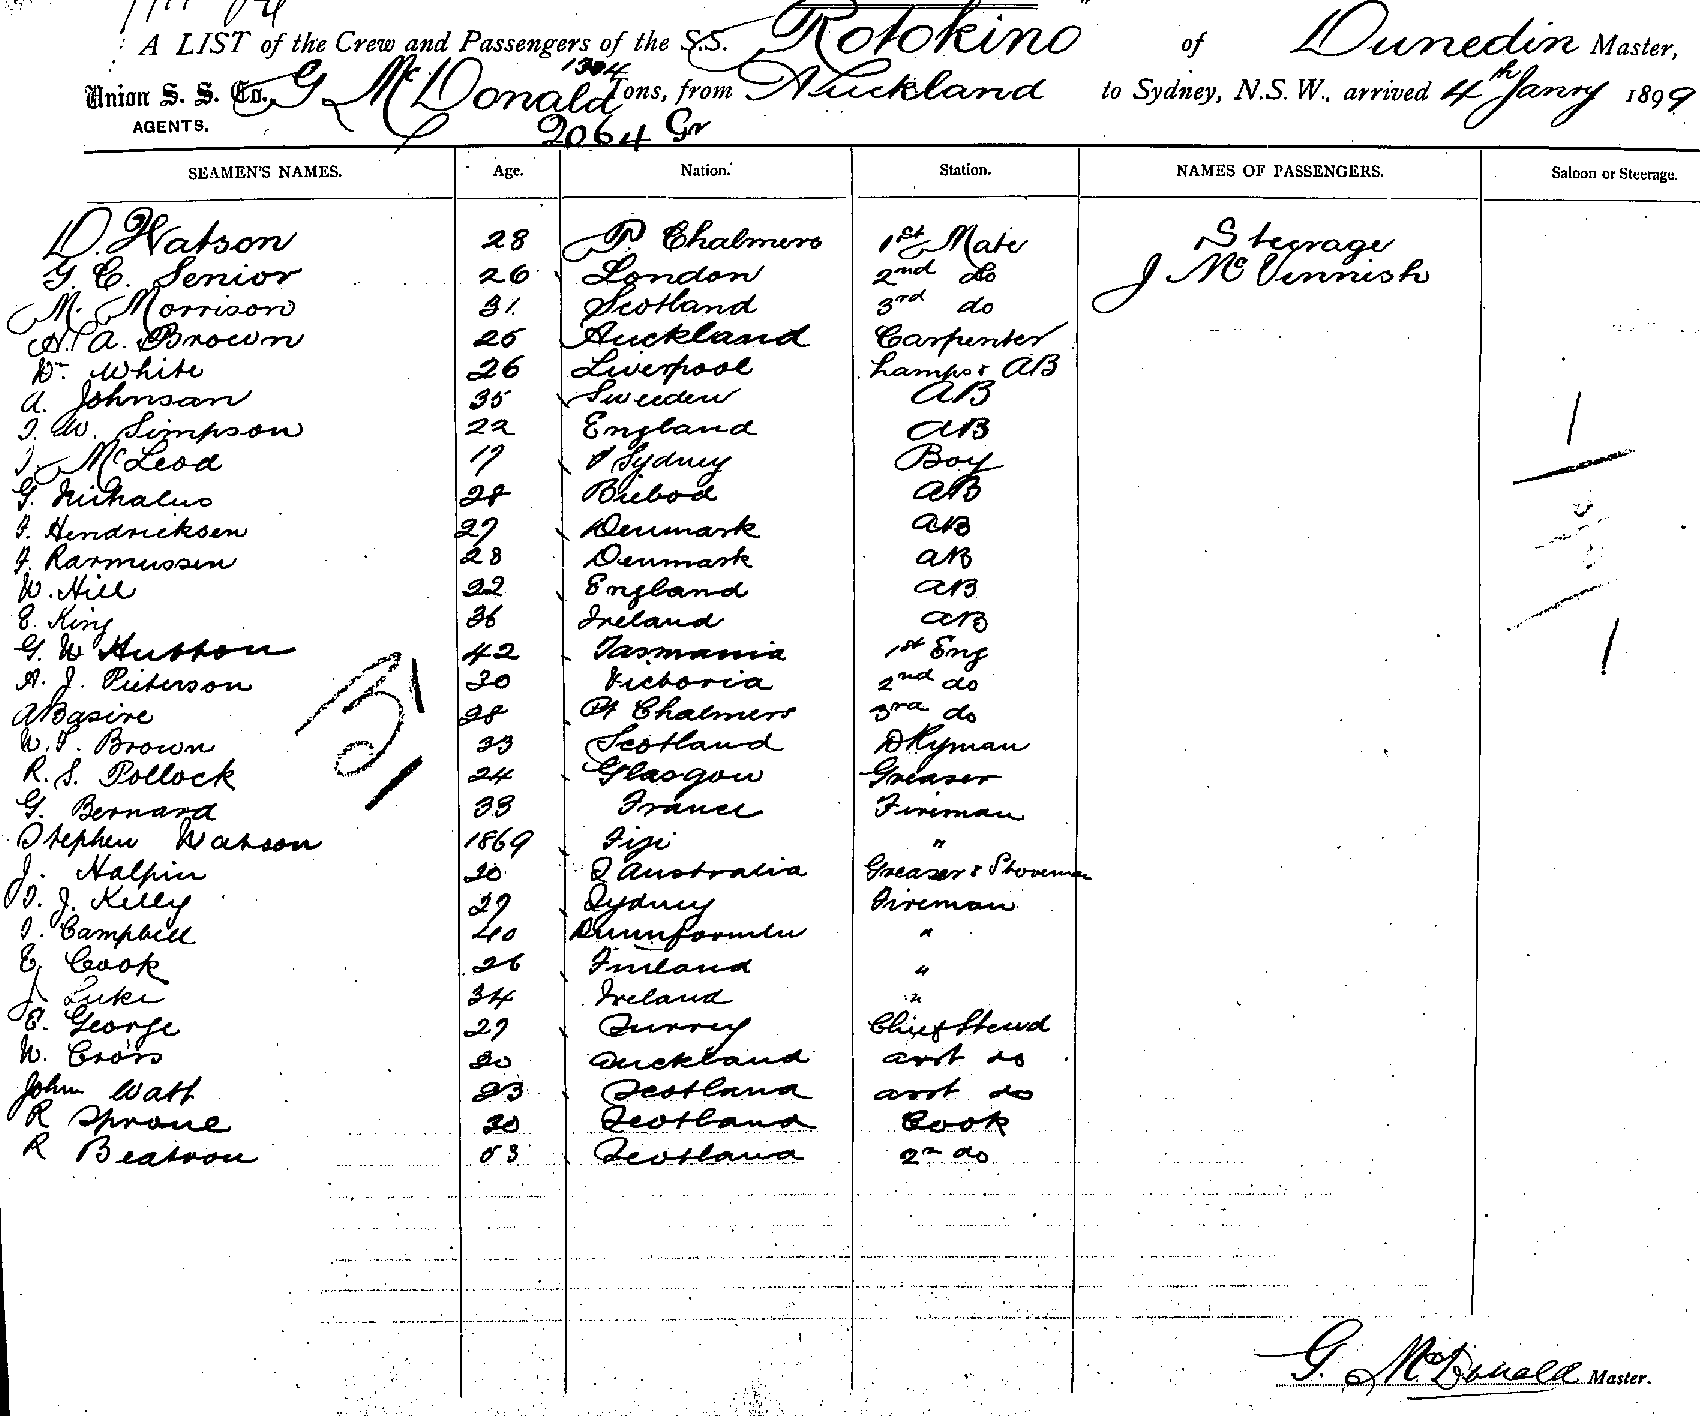 A LIST of the Crew and Passengers of the S.S. Rotokino of Dunedin Master,
Union S. S. Co. G McDonald 1304 Tons, from Auckland to Sydney, N.S.W., arrived 4th Janry 1899
AGENTS. 2064 Gr
SEAMEN'S NAMES. Age. Nation. Station. NAMES OF PASSENGERS. Saloon or Steerage.
D. Watson 28 P. Chalmers 1st Mate Steerage
G. C. Senior 26 London 2nd do J McVinnish
M. Morrison 31 Scotland 3rd do
A. A. Brown 25 Auckland Carpenter
W. White 26 Liverpool Lamps & AB
A. Johnson 35 Sweeden AB
J. W. Simpson 22 England AB 1
J. McLeod 17 Sydney Boy
G. Nichalus 28 AB
J. Hendricksen 27 Denmark AB
J. Rasmussen 28 Denmark AB
W. Hill 22 England AB
E. King 36 Ireland AB
G. W Hutton 42 Tasmania 1st Eng 1
A. J. Pieterson 30 Victoria 2nd do
A Basire 28 Pt Chalmers 3rd do
W. T. Brown 33 Scotland DKyman
R. S. Pollock 24 Glasgow Greaser
G. Bernard 33 France Fireman
Stephen Watson 1869 Fiji "
J. Halpin 30 S Australia Greaser & Storeman
T. J. Kelly 27 Sydney Fireman
J. Campbell 40 "
E. Cook 26 Finland "
J. Luke 34 Ireland "
E. George 27 Surrey Chief Stewd
W. Cross 30 Auckland asst do
John Watt 23 Scotland asst do
R Sproul 30 Scotland Cook
R Beatson 53 Scotland 2nd do
31
G. McDonald Master.